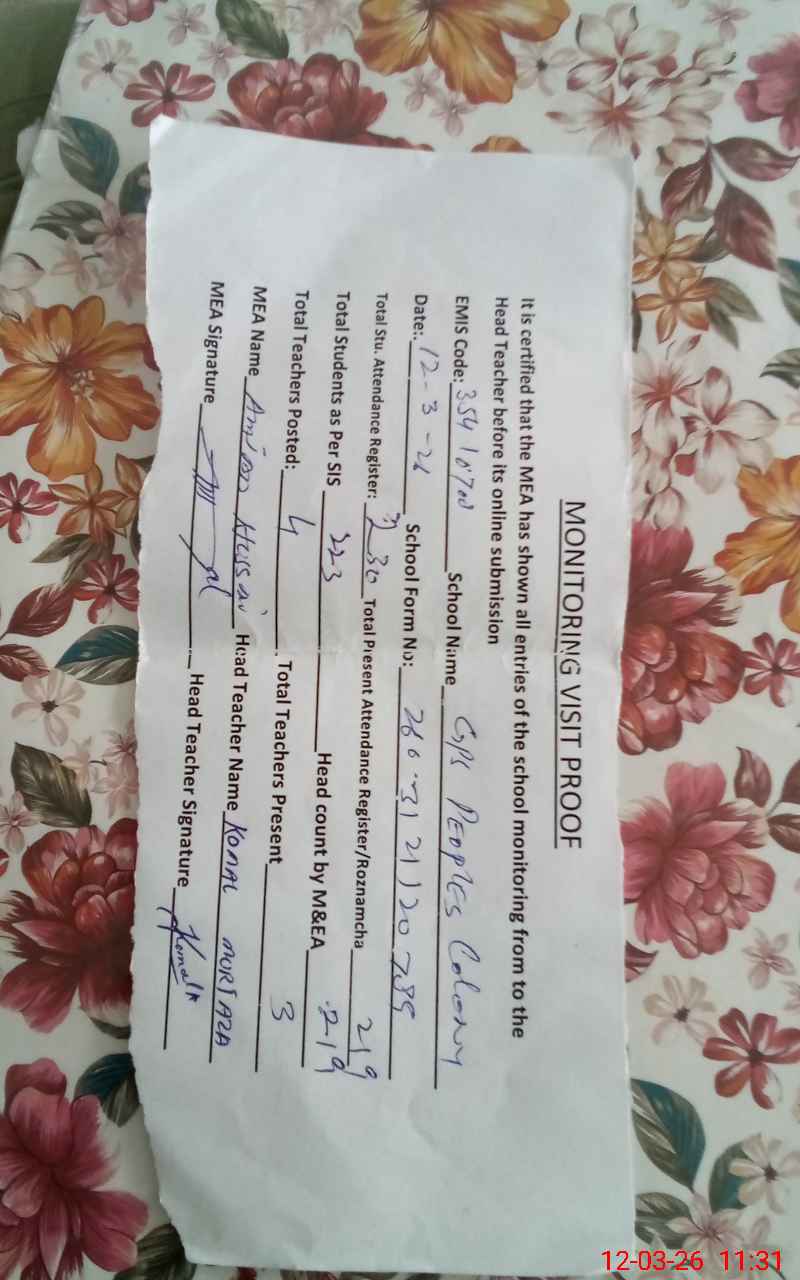 MONITORING VISIT PROOF
It is certified that the MEA has shown all entries of the school monitoring from to the
Head Teacher before its online submission
EMIS Code: 35410700 School Name GPS PEOPLES COLONY
Date: 12-3-26 School Form No:
Total Stu. Attendance Register: 230 Total Present Attendance Register/Roznamcha 219
Total Students as Per SIS 223 Head count by M&EA 219
Total Teachers Posted: 4 Total Teachers Present 3
MEA Name Hussain Head Teacher Name KOMAL MURTAZA
MEA Signature Head Teacher Signature Komal
12-03-26 11:31